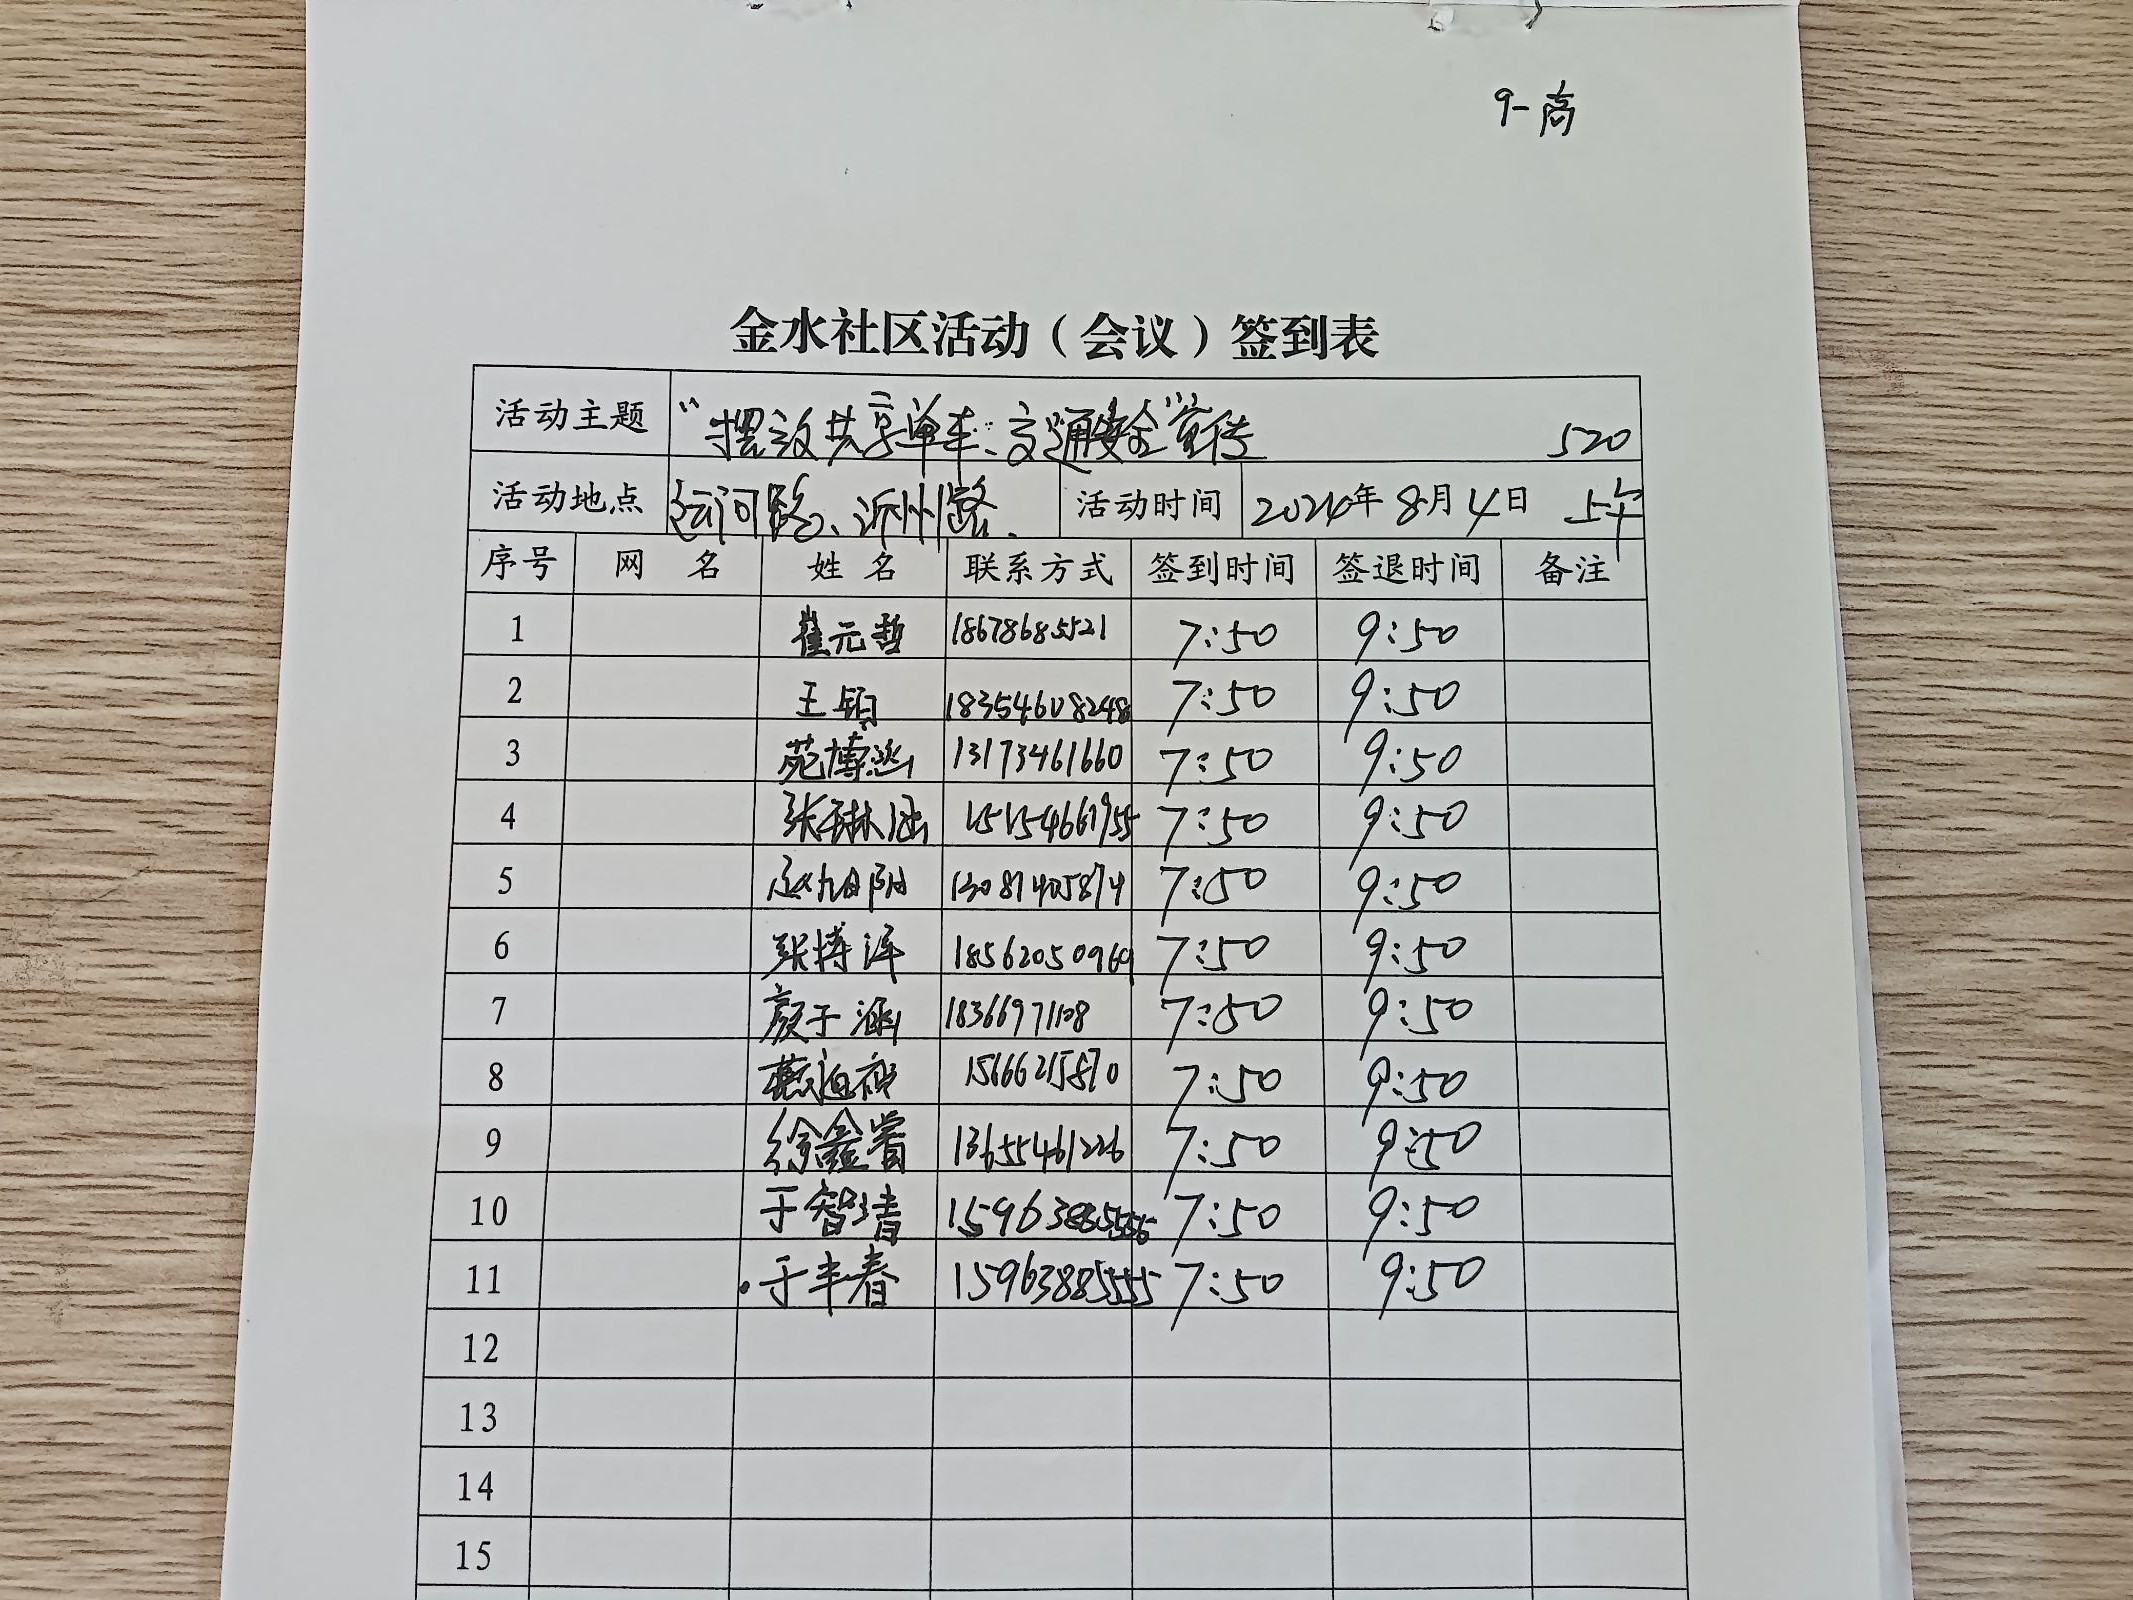 9-高
金水社区活动（会议）签到表
活动主题 "摆放共享单车、交通安全"宣传 520
活动地点 运河路、沂州路 活动时间 2024年8月4日 上午
序号 网 名 姓 名 联系方式 签到时间 签退时间 备注
1 崔元哲 18678685521 7:50 9:50
2 王頔 18354608248 7:50 9:50
3 苑博涵 13173461660 7:50 9:50
4 张琳涵 15154661955 7:50 9:50
5 赵九阳 13081405874 7:50 9:50
6 张博洋 18562050969 7:50 9:50
7 颜于涵 18366971108 7:50 9:50
8 15666215870 7:50 9:50
9 徐鑫蕾 13655461226 7:50 9:50
10 于智清 7:50 9:50
11 于丰春 15963885555 7:50 9:50
12
13
14
15